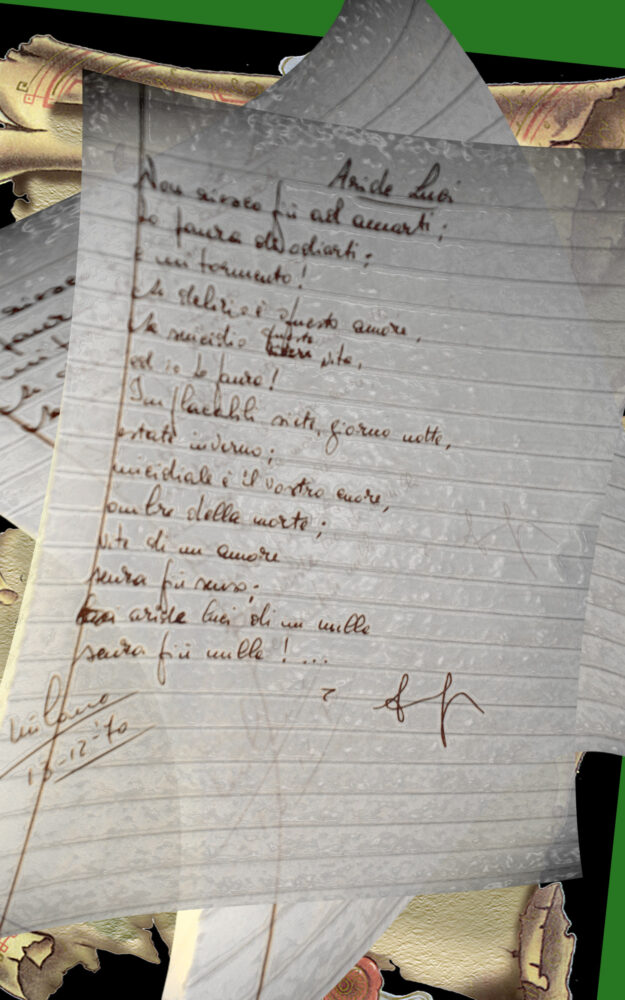 Aride Luci
Non riesco più ad amarti;
ho paura di odiarti;
è un tormento!
Se delirio è questo amore,
Se suicidio questa vita,
ed io ho paura!
Implacabili siete, giorno notte,
estate inverno;
micidiale è il vostro amore,
ombre della morte;
vite di un amore
senza più senso;
aride luci di un nulla
senza più nulla! ...
Milano
12-70